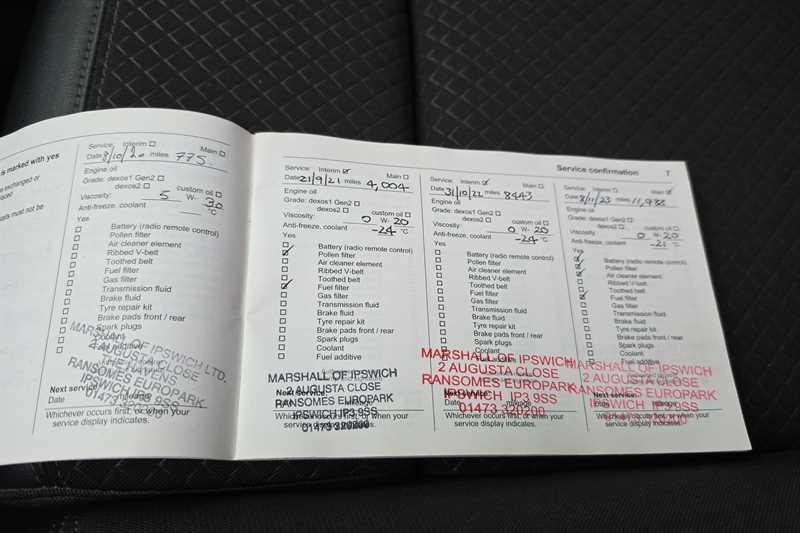 is marked with yes
exchanged or
rts must not be
Service: Interim Main
Date 8/10/20 miles 775.
Engine oil
Grade: dexos1 Gen2
dexos2 custom oil
Viscosity: 5 W- 30
Anti-freeze, coolant °C
Yes
Battery (radio remote control)
Pollen filter
Air cleaner element
Ribbed V-belt
Toothed belt
Fuel filter
Gas filter
Transmission fluid
Brake fluid
Tyre repair kit
Brake pads front / rear
Spark plugs
Coolant
MARSHALL OF IPSWICH LTD.
2 AUGUSTA CLOSE
RANSOMES EUROPARK
IPSWICH IP3 9SS
Next service
Date mileage
Whichever occurs first, or when your
service display indicates.
Service confirmation 7
Service: Interim Main
Date 21/9/21 miles 4,004
Engine oil
Grade: dexos1 Gen2
dexos2 custom oil
Viscosity: 0 W- 20
Anti-freeze, coolant -24 °C
Yes
Battery (radio remote control)
Pollen filter
Air cleaner element
Ribbed V-belt
Toothed belt
Fuel filter
Gas filter
Transmission fluid
Brake fluid
Tyre repair kit
Brake pads front / rear
Spark plugs
Coolant
Fuel additive
MARSHALL OF IPSWICH
2 AUGUSTA CLOSE
Next service
RANSOMES EUROPARK
IPSWICH IP3 9SS
Whichever occurs first, or when your
service display indicates.
01473 320200
Service: Interim Main
Date 31/10/22 miles 8443
Engine oil
Grade: dexos1 Gen2
dexos2 custom oil
Viscosity: 0 W- 20
Anti-freeze, coolant -24 °C
Yes
Battery (radio remote control)
Pollen filter
Air cleaner element
Ribbed V-belt
Toothed belt
Fuel filter
Gas filter
Transmission fluid
Brake fluid
Tyre repair kit
Brake pads front / rear
Spark plugs
Coolant
MARSHALL OF IPSWICH
2 AUGUSTA CLOSE
RANSOMES EUROPARK
IPSWICH IP3 9SS
Date mileage
01473 320200
Whichever occurs first, or when your
service display indicates.
Service: Interim Main
Date 8/11/23 miles 11,988
Engine oil
Grade: dexos1 Gen2
dexos2 custom oil
Viscosity: 0 W- 20
Anti-freeze, coolant -21 °C
Yes
Battery (radio remote control)
Pollen filter
Air cleaner element
Ribbed V-belt
Toothed belt
Fuel filter
Gas filter
Transmission fluid
Brake fluid
Tyre repair kit
Brake pads front / rear
Spark plugs
Coolant
Fuel additive
MARSHALL OF IPSWICH
2 AUGUSTA CLOSE
RANSOMES EUROPARK
IPSWICH IP3 9SS
Whichever occurs first, or when your
service display indicates.